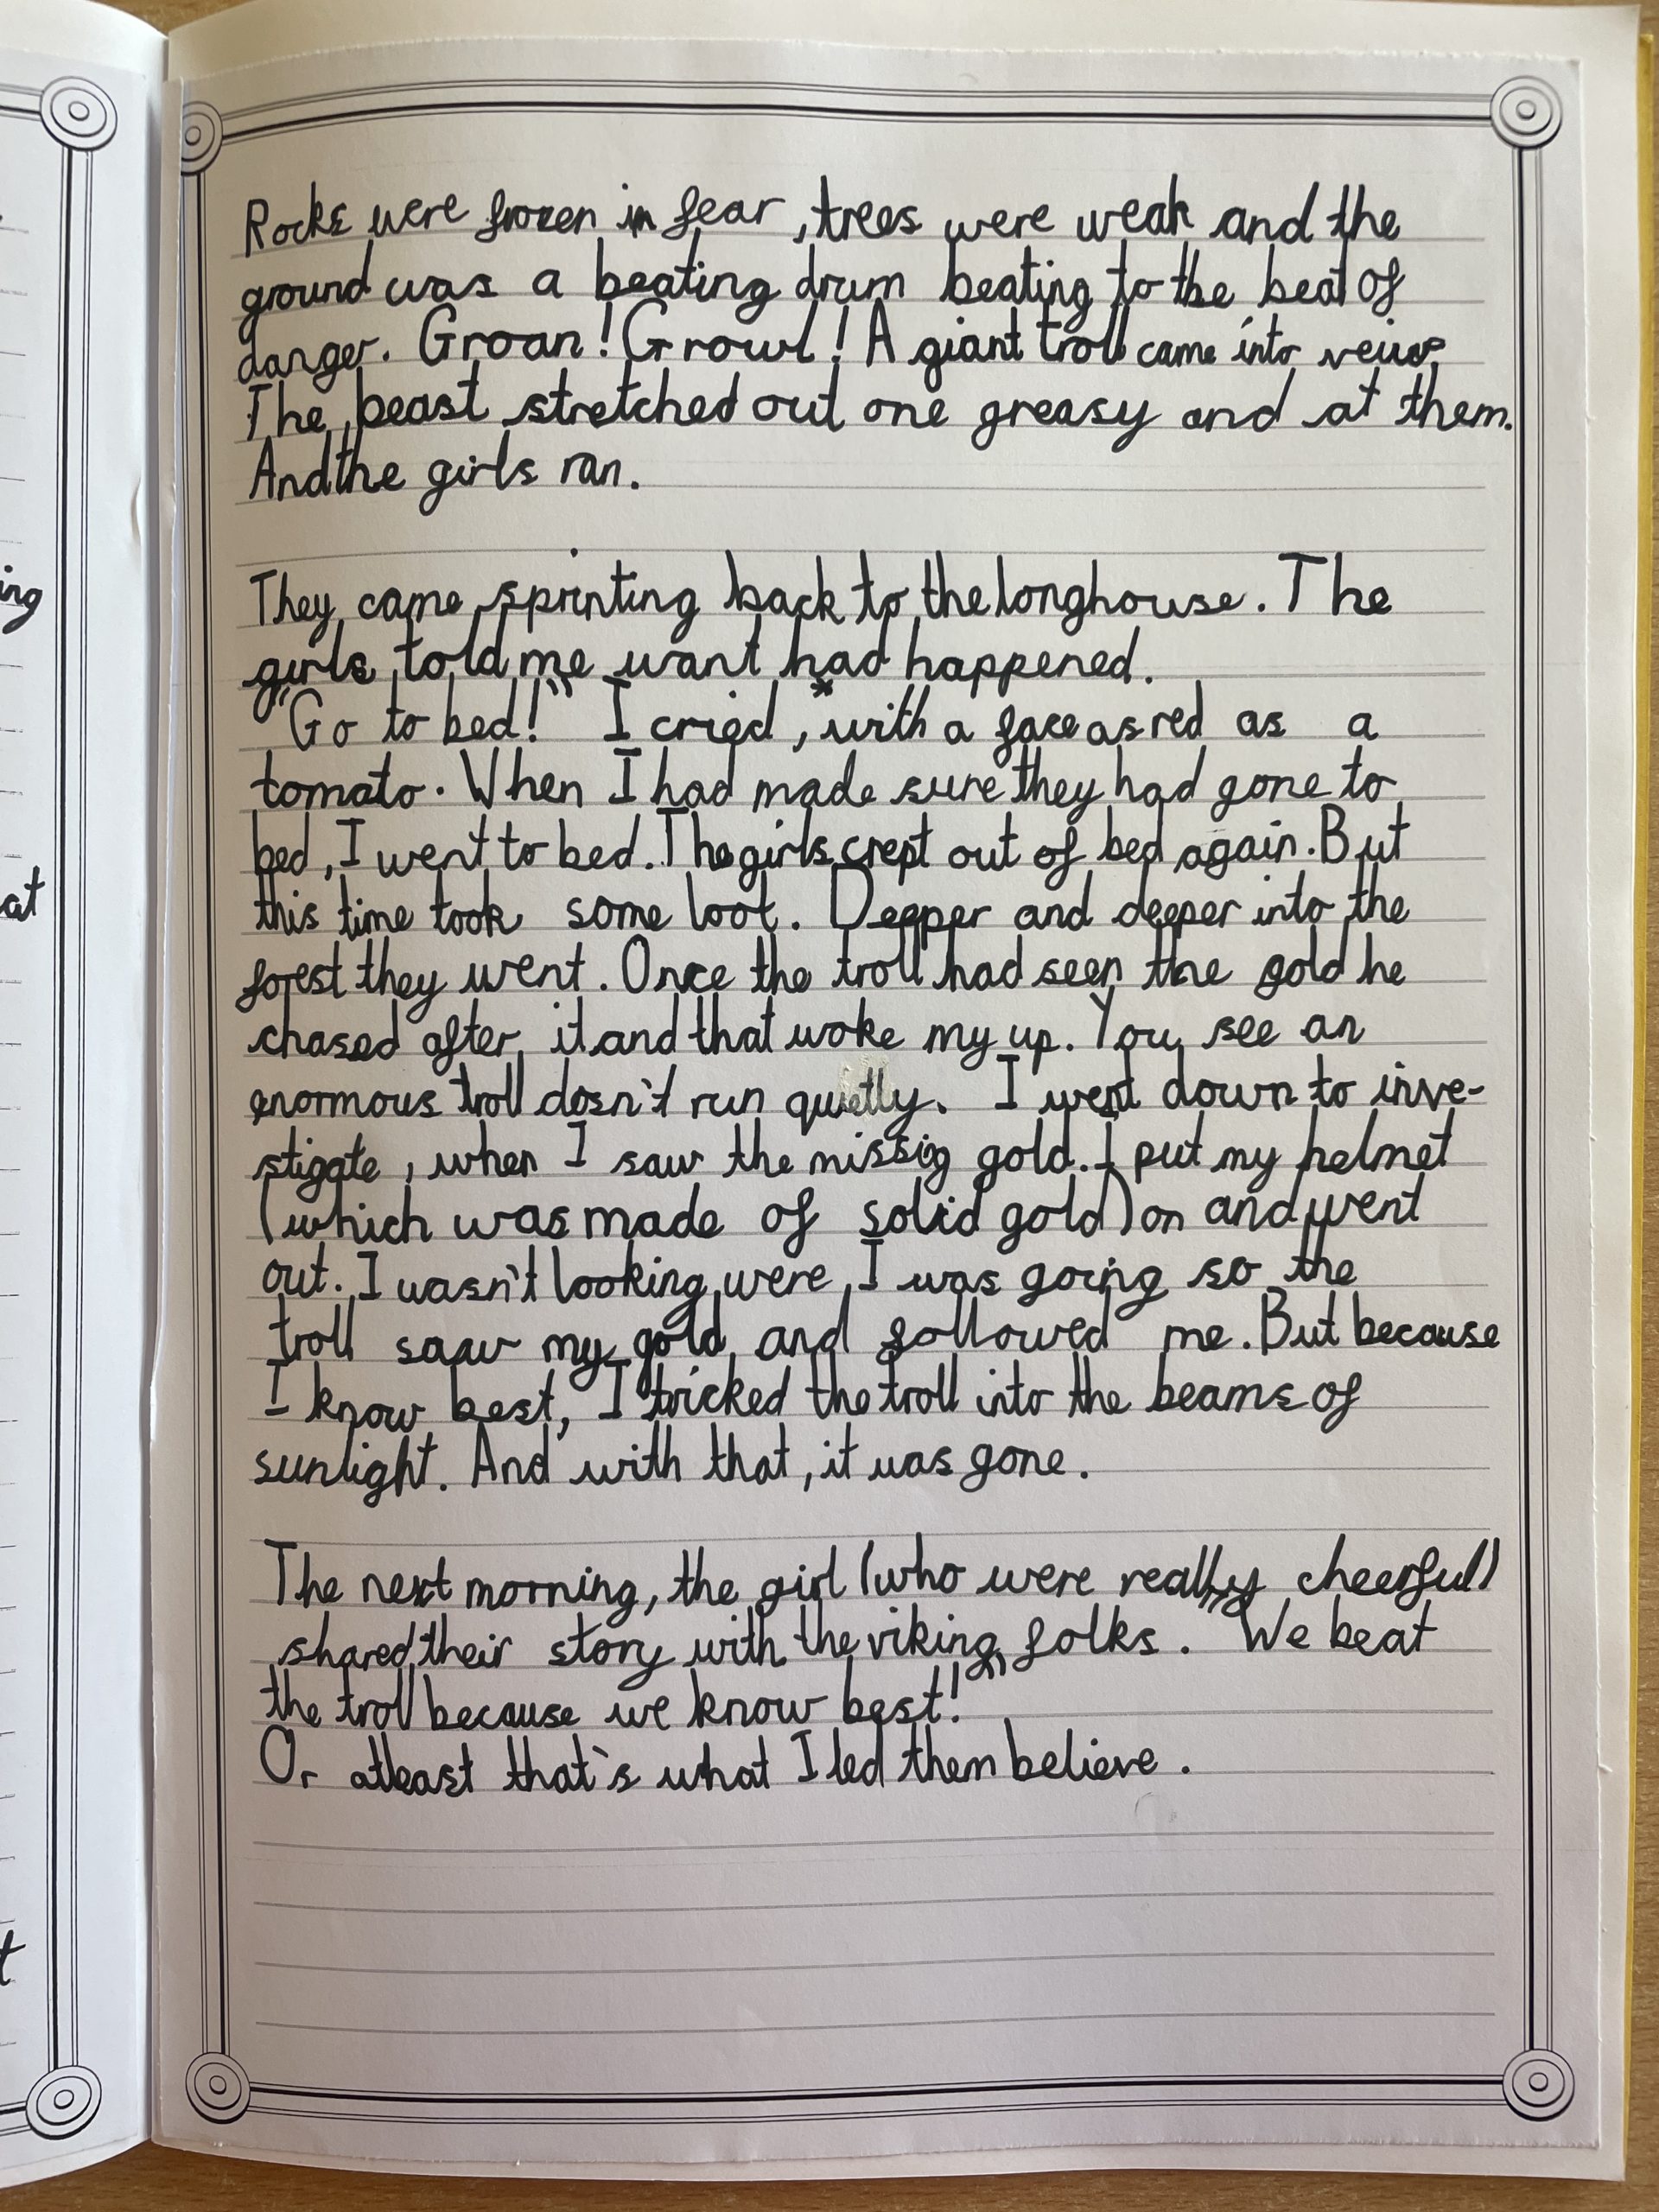 ing
at
t
Rocks were frozen in fear, trees were weak and the
ground was a beating drum beating to the beat of
danger. Groan! Growl! A giant troll came into veiw.
The beast stretched out one greasy and at them.
And the girls ran.
They came sprinting back to the longhouse. The
girls told me want had happened.
"Go to bed!" I cried, with a face as red as a
tomato. When I had made sure they had gone to
bed, I went to bed. The girls crept out of bed again. But
this time took some loot. Deeper and deeper into the
forest they went. Once the troll had seen the gold he
chased after it and that woke my up. You see an
enormous troll dosn't run quietly. I went down to inve-
stigate, when I saw the missig gold. I put my helmet
(which was made of solid gold) on and went
out. I wasn't looking were I was going so the
troll saw my gold and followed me. But because
I know best, I tricked the troll into the beams of
sunlight. And with that, it was gone.
The next morning, the girl (who were really cheerful)
shared their story with the viking folks. "We beat
the troll because we know best!"
Or atleast that's what I led them believe.